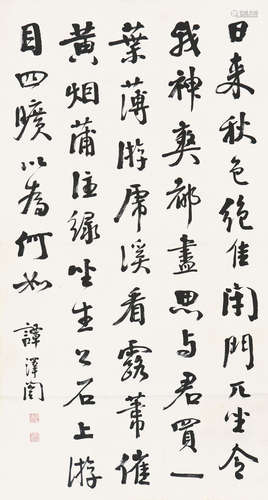 日来秋色绝佳闭门兀坐令
我神爽都尽思与君买一
葉薄游虎溪看露苇催
黄烟蒲注绿坐生公石上游
目四曠以為何如
譚澤闓